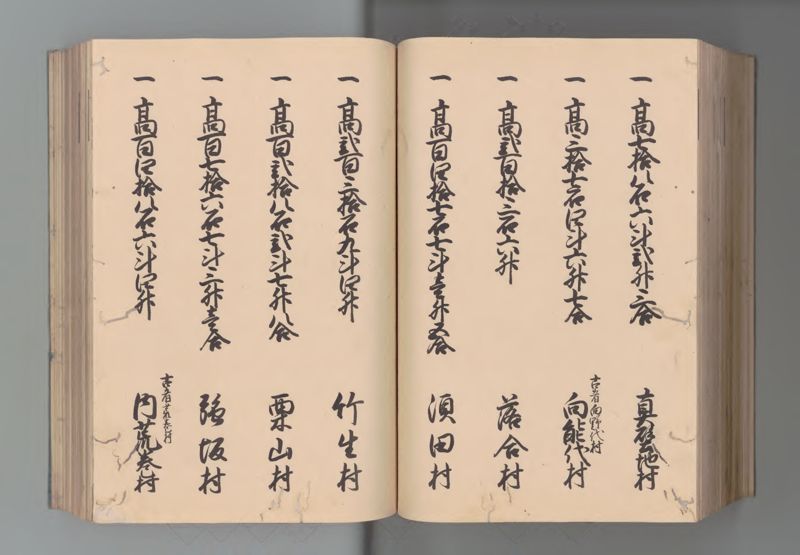 一 高七拾八石六斗弐升三合
真壁地村
一 高三拾七石四斗六升七合
古者向野代村
向能代村
一 高弐百拾三石六升
落合村
一 高百四拾七石七斗壱升五合
須田村
一 高弐百三拾石九斗四升
竹生村
一 高百弐拾八石弐斗七升八合
栗山村
一 高百七拾六石七斗三升壱合
強坂村
一 高百四拾八石六斗四升
荒巻村